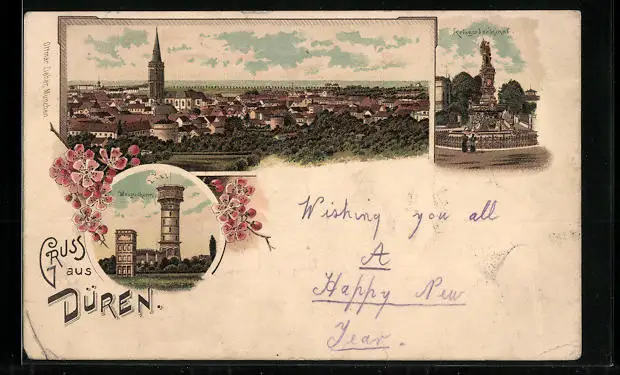 Ottmar Zieher, München.
Kriegerdenkmal
Wasserthurm
GRUSS
aus
DÜREN.
Wishing you all
A
Happy New
Year.